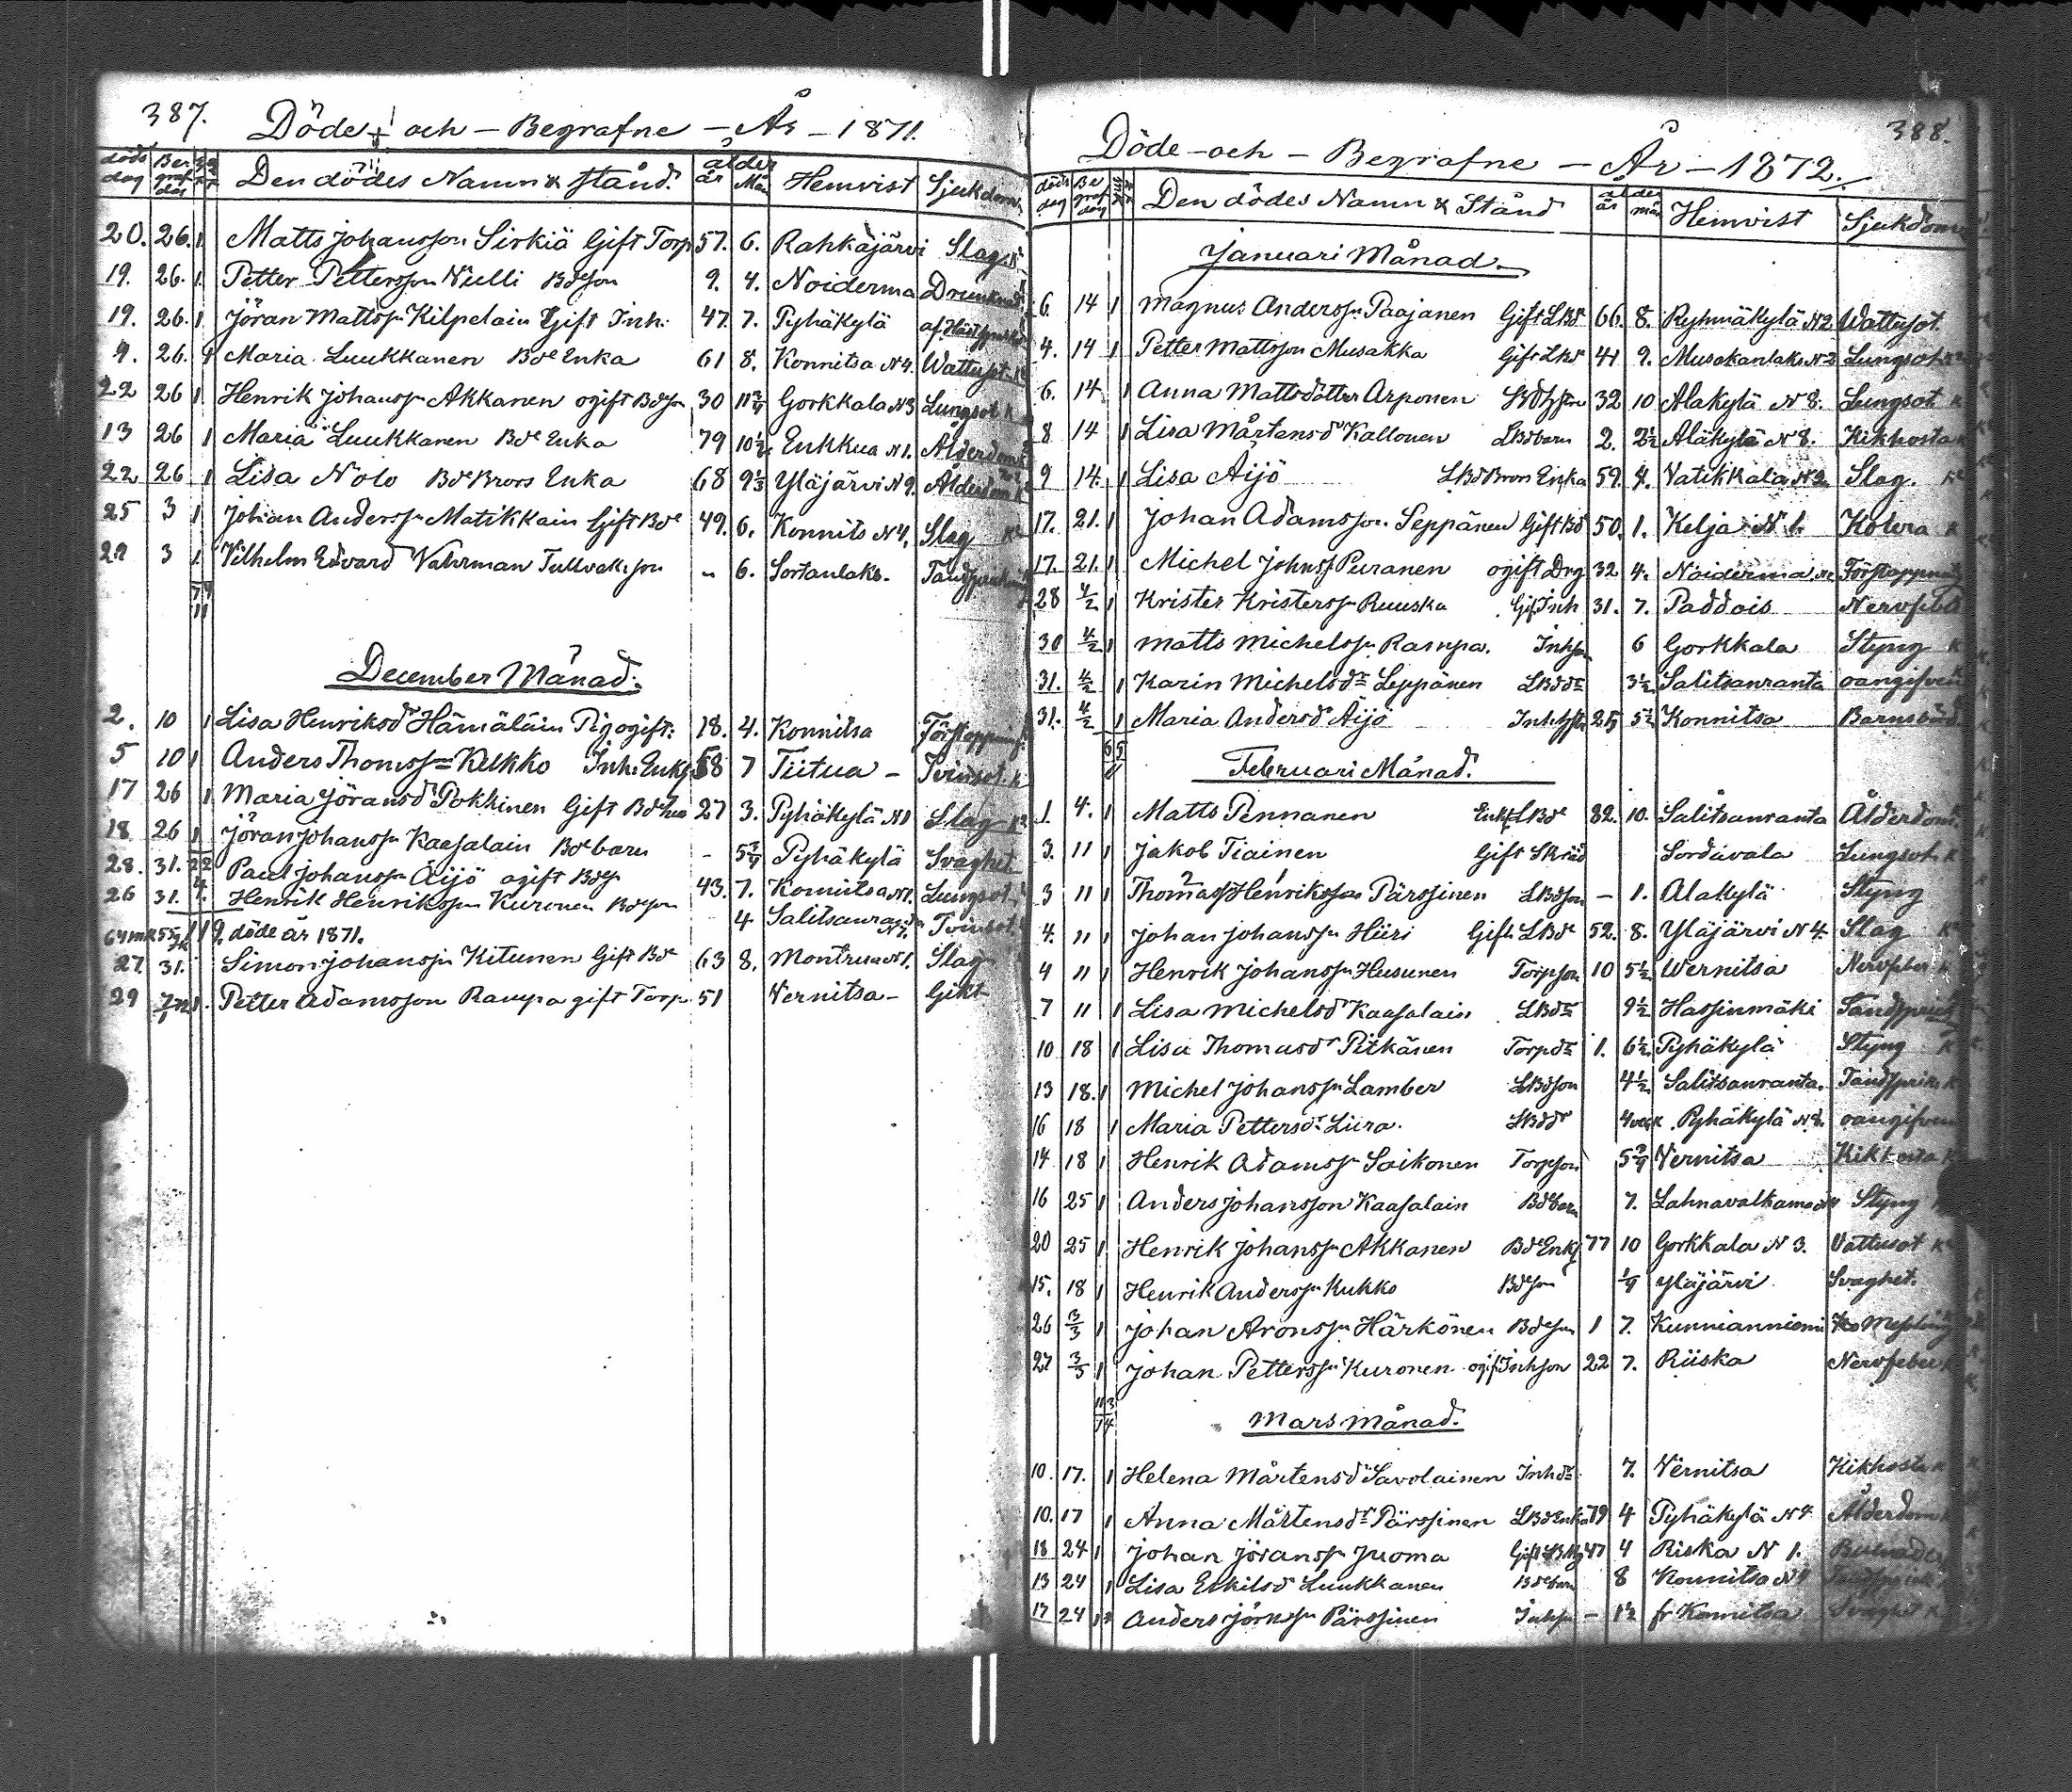 387.
Döde - och - Begrafne - År - 1871.
döds dag Be graf dag Den dödes Namn & stånd. ålder år Mån Hemvist Sjukdom
20. 26. 1 Matts Johansson Sirkiä Gift Torp 57. 6. Rahkajärvi Slag.
19. 26. 1. Petter Pettersson Nulli Bdeson 9. 4. Noiderma Drunknad
19. 26. 1 Jöran Mattss. Kilpelain Gift Inh. 47. 7. Pyhäkylä
9. 26. 1 Maria Luukkanen Bde Enka 61 8. Konnitsa N4. Wattusot
22 26 1 Henrik Johanss. Akkanen ogift Bdeson 30 11 3/4 Gorkkala N3 Lungsot
13 26 1 Maria Luukkanen Bde Enka 79 10 1/2 Enkkua N1. Ålderdom
22 26 1 Lisa Nolo Bde Brors Enka 68 9 1/3 Yläjärvi N9. Ålderdom
25 3 1 Johan Anderss. Matikkain Gift Bde 49. 6. Konnits N4. Slag
22 3 1. Vilhelm Edvard Vahrman son - 6. Sortanlaks.
December Månad.
2. 10 1 Lisa Henriksdr Hämäläin Pig ogift. 18. 4. Konnitsa Förstoppning
5 10 1 Anders Thomss. Kukko Inh. Enkl 58 7 Tiitua -
17 26 1 Maria Jöransdr Pokkinen Gift Bde 27 3. Pyhäkylä N1 Slag
18 26 1 Jöran Johanss. Kaasalain Bde barn - 5 3/4 Pyhäkylä Svaghet
28. 31. Paul Johanss. Äijö ogift Bdes 43. 7. Konnitsa N1. Lungsot
26 31. Henrik Henrikss. Kuronen Bdeson - 4 Salitsanranta
119. döde år 1871.
27. 31. Simon Johanss. Kitunen Gift Bde 63 8. Montrua N1. Slag
29 7/1 1. Petter Adamsson Rampa gift Torp. 51 Vernitsa - Gikt
388.
Döde - och - Begrafne - År - 1872.
döds dag Be graf dag Den dödes Namn & Stånd ålder år mån Hemvist Sjukdom
Januari Månad.
6. 14 1 Magnus Anderss. Paajanen Gift LBd 66. 8. Ryhmäkylä N2 Wattusot.
4. 14 1 Petter Mattsson Musakka Gift LBd 41 9. Musakanlaks N2 Lungsot
6. 14. 1 Anna Mattsdotter Arponen 32 10 Alakylä N8. Lungsot
8 14 1 Lisa Mårtensdr Kallonen LBdbarn 2. 2 1/2 Aläkylä N8. Kikhosta
9 14. 1 Lisa Äijö LBd Brors Enka 59. 4. Vatikkala N2 Slag.
17. 21. 1 Johan Adamsson Seppänen Gift Bd 50. 1. Kelja N1. Kolera
17. 21. 1 Michel Johnss Puranen ogift Drg 32 4. Noiderma Förstoppning
28 4/2 1 Krister Kristerss. Ruuska Gif. Inh 31. 7. Paddois Nervfeb
30 4/2 1 Matts Michelss. Rampa. Inhson 6 Gorkkala Styng
31. 4/2 1 Karin Michelsdr Leppänen LBddr 3 1/2 Salitsanranta oangifven
31. 4/2 1 Maria Andersdr Äijö 25 5 1/2 Konnitsa Barnsbörd
Februari Månad.
1. 4. 1 Matts Pennanen Enkl. LBde 82. 10. Salitsanranta Ålderdom.
3. 11 1 Jakob Tiainen Gift Skräd Sordavala Lungsot
3 11 1 Thomas Henriksson Pärssinen LBdson - 1. Alakylä Styng
4. 11 1 Johan Johanss. Hiiri Gift LBde 52. 8. Yläjärvi N4. Slag
4 11 1 Henrik Johanss. Husunen Torpson 10 5 1/2 Wernitsa Nervfeber
7 11 1 Lisa Michelsdr Kaasalain LBdr 9 1/2 Hassinmäki Tandsprick
10 18 1 Lisa Thomasdr Pitkänen Torpdr 1. 6 1/2 Pyhäkylä Styng
13 18. 1 Michel Johanss. Lamber LBdson 4 1/2 Salitsanranta. Tandsprik.
16 18 1 Maria Pettersdr Liira. LBddr 4 veck Pyhäkylä N8. oangifven
14 18 1 Henrik Adamss. Saikonen Torpson 5 3/4 Vernitsa Kikhosta
16 25 1 Anders Johansson Kaasalain Bdebarn 7. Lahnavalkama Styng
20 25 1 Henrik Johanss. Akkanen Bde Enkl 77 10 Gorkkala N3. Vattusot
15. 18 1 Henrik Anderss. Kukko Bdeson 1/4 Yläjärvi Svaghet.
26 3/3 1 Johan Aronss. Härkönen Bdeson 1 7. Kunnianniemi
27 3/3 1 Johan Petterss. Kuronen ogif. Inhson 22 7. Riiska Nervfeber
Mars Månad.
10. 17. 1 Helena Mårtensdr Savolainen Inhdr 7. Vernitsa Kikhosta
10. 17 1 Anna Mårtensdr Pärssinen LBd Enka 79 4 Pyhäkylä N4 Ålderdom
18 24 1 Johan Jöranss. Juoma Gift 47 4 Riska N1.
13 24 1 Lisa Eskilsdr Luukkanen Bdebarn 8 Konnitsa N4
17 24 1 Anders Jörnss. Pärssinen Inhson - 1 1/2 fr Konnitsa Svaghet